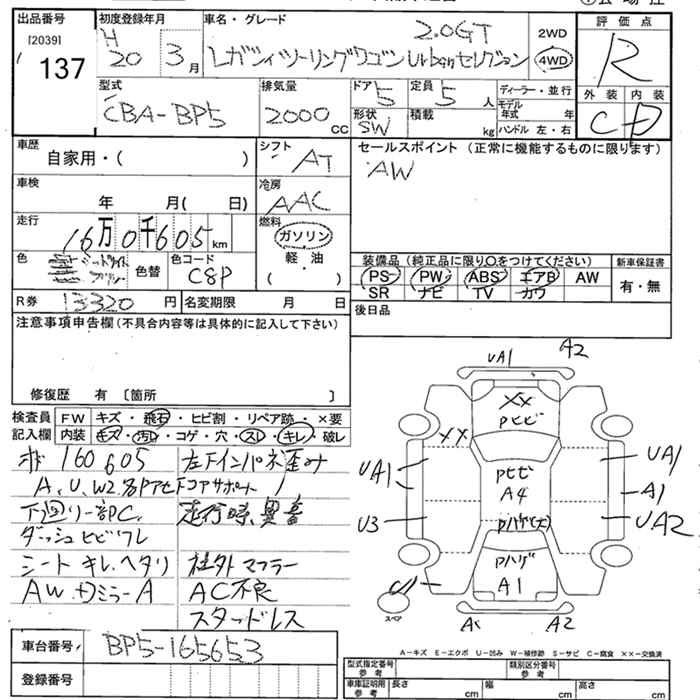 出品番号 初度登録年月 車名・グレード 2.0GT 2WD 評価点
[2039] H
137 20 3月 レガシィツーリングワゴン Urbanセレクション 4WD R
型式 排気量 ドア 定員 ディーラー・並行 外装 内装
CBA-BP5 2000cc 5 5人 モデル年式 年 C D
形状 積載 ハンドル 左・右
SW kg
車歴 シフト セールスポイント (正常に機能するものに限ります)
自家用・( ) AT AW
車検 冷房
年 月( 日) AAC
走行 燃料
16万0千605km ガソリン
色 色替 色コード 軽・油 装備品 (純正品に限り○をつけてください) 新車保証書
C8P ( ) PS PW ABS エアB AW 有・無
SR ナビ TV カワ
R券 13320円 名変期限 月 日 後日品
注意事項申告欄(不具合内容等は具体的に記入して下さい)
修復歴 有 〔箇所 〕
検査員記入欄 FW キズ・飛石・ヒビ割・リペア跡・×要
内装 キズ・汚レ・コゲ・穴・スレ・キレ・破レ
160605 左Fインパネ歪み
A、U、W2 各P コアサポート
下廻リ一部C、 走行時異音
ダッシュヒビワレ
シート キレ、ヘタリ 社外マフラー
AW、ドミラーA AC不良
スタッドレス
UA1 A2
XX
Pヒビ
XX
UA1 UA1
Pヒビ
A4 A1
U3 UA2
Pハゲ
A1
スペア A2
A-キズ E-エクボ U-凹み W-補修跡 S-サビ C-腐食 ××-交換済
車台番号 BP5-165653
登録番号
型式指定番号参考 類別区分番号参考
車庫証明用参考 長さ cm 幅 cm 高さ cm